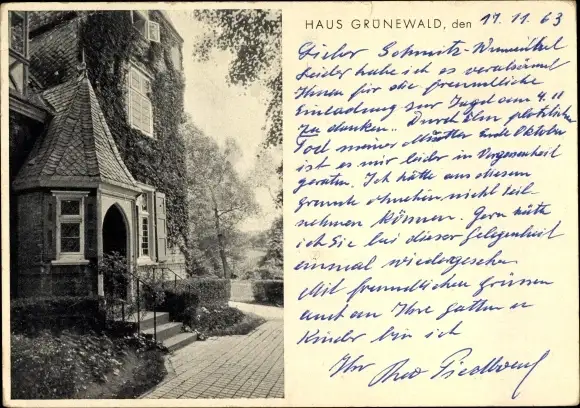 HAUS GRÜNEWALD, den 17. 11. 63
Lieber Schmitz-
Leider habe ich es versäumt
Ihnen für die freundliche
Einladung zur Jagd am 9. 11
zu danken. Durch den plötzlichen
Tod meiner Mutter Ende Oktober
ist es mir leider in Vergessenheit
geraten. Ich hätte aus diesem
Grunde ohnehin nicht teil
nehmen können. Gern hätte
ich Sie bei dieser Gelegenheit
einmal wiedergesehen
Mit freundlichen Grüssen
auch an Ihre Gattin u
Kinder bin ich
Ihr